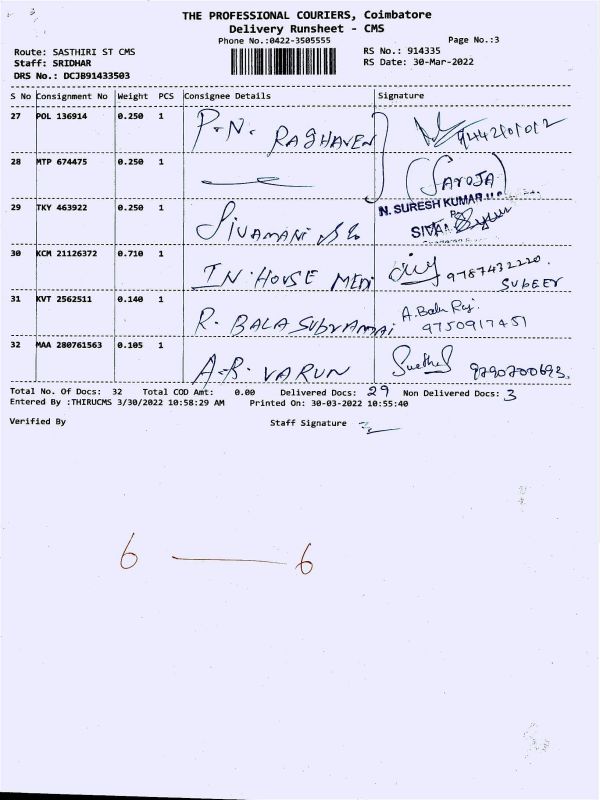 3
THE PROFESSIONAL COURIERS, Coimbatore
Delivery Runsheet - CMS
Phone No.:0422-3505555 Page No.:3
Route: SASTHIRI ST CMS RS No.: 914335
Staff: SRIDHAR RS Date: 30-Mar-2022
DRS No.: DCJB91433503
S No Consignment No Weight PCS Consignee Details Signature
27 POL 136914 0.250 1 P.N. RAGHAVEN
28 MTP 674475 0.250 1 (SAROJA)
N. SURESH KUMAR
29 TKY 463922 0.250 1 SIVAMANI
30 KCM 21126372 0.710 1 IN HOUSE MEDI 9787432220.
SUBEER
31 KVT 2562511 0.140 1 R. BALA SUBRAMAI A. Balu Raj.
9750917451
32 MAA 280761563 0.105 1 A.R. VARUN 9790700693.
Total No. Of Docs: 32 Total COD Amt: 0.00 Delivered Docs: 29 Non Delivered Docs: 3
Entered By :THIRUCMS 3/30/2022 10:58:29 AM Printed On: 30-03-2022 10:55:40
Verified By Staff Signature
6 — 6